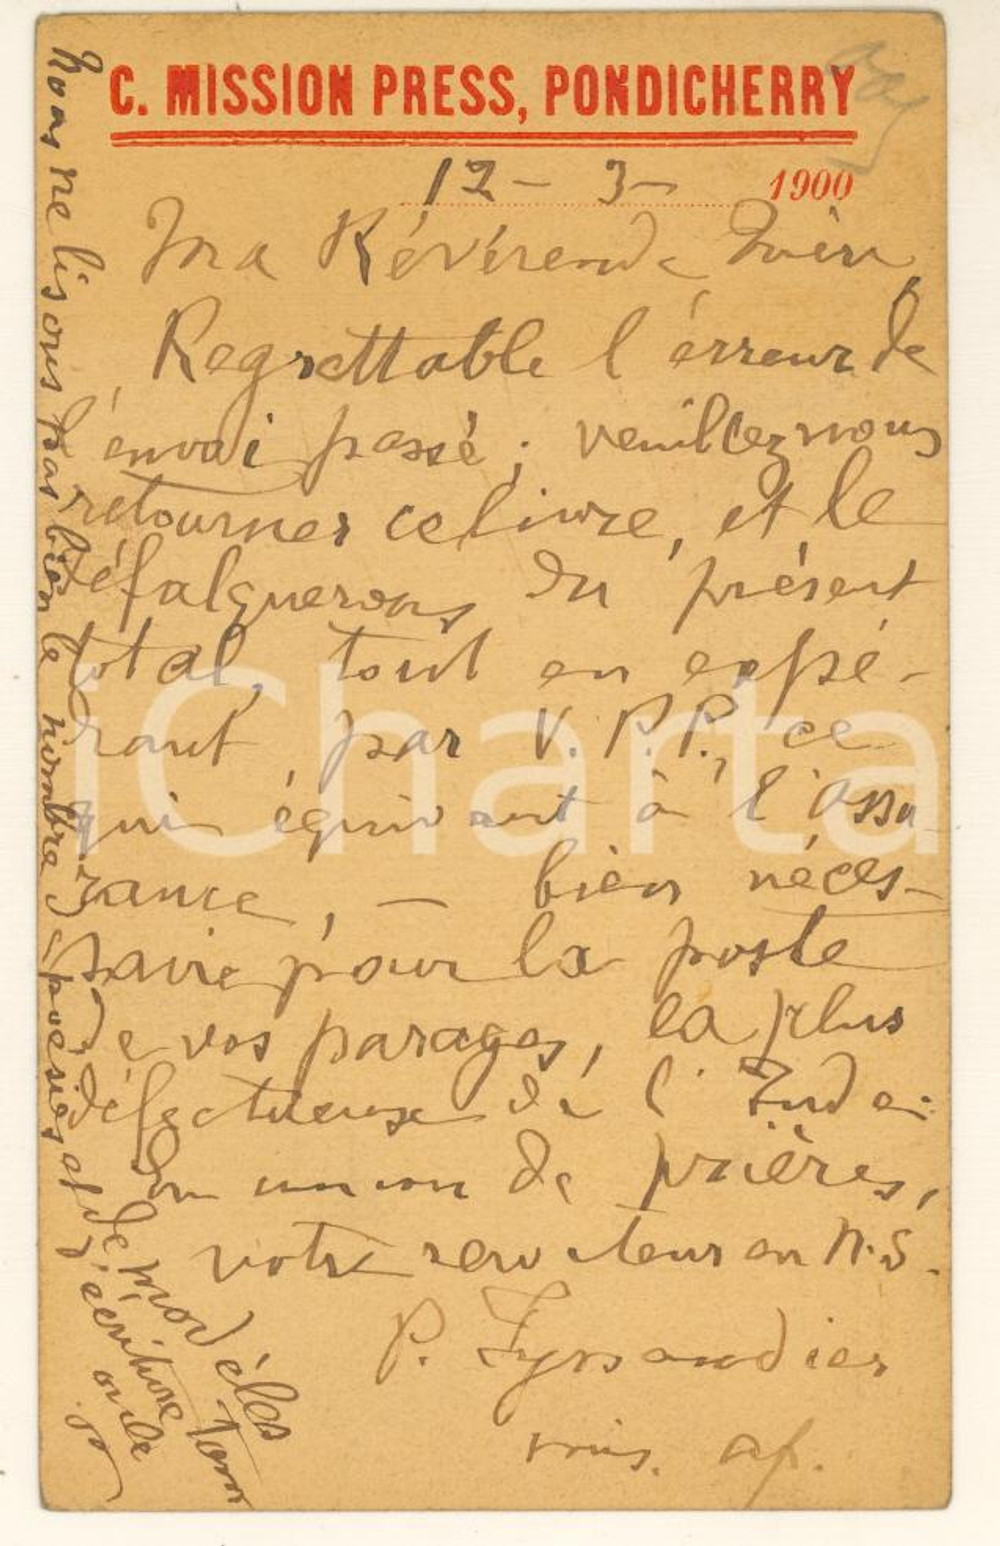 C. MISSION PRESS, PONDICHERRY
12 - 3 - 1900
Ma Révérende Mère,
Regrettable l'érreur de
l'envoi passé; veuillez nous
retourner ce livre, et le
défalquerons du présent
total, tout en expé-
rant, par V. P. P., ce
qui équivaut à l'assu-
rance, — bien néces-
saire pour la poste
de vos parages, la plus
défectueuse de l'Inde.
En union de prières,
votre serviteur en N.S.
P. Fyssandier
mis. ap.
Nous ne lisons pas bien le nombre de poésies et
de modèles
d'écriture
iCharta